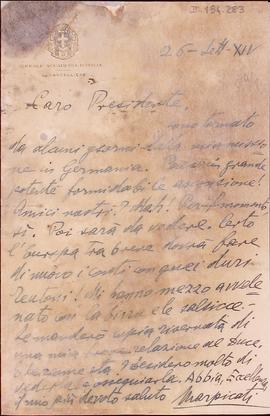 II-194.283
REALE ACCADEMIA D'ITALIA
26 - Sett - XIV
Caro Presidente,
sono tornato
da alcuni giorni dalla mia missio
ne in Germania. Paese in grande
potente formidabile ascensione!
Amici nostri? Mah! Per il momento
sì. Poi sarà da vedere. Certo
l'Europa tra breve dovrà fare
di nuovo i conti con quei duri
Teutoni! Mi hanno mezzo avvele
nato con la birra e le salsicce.
Le manderò copia riservata di
una mia relazione al Duce.
Desidero molto di
Abbia, Eccellenza,
il mio più devoto saluto Marpicati